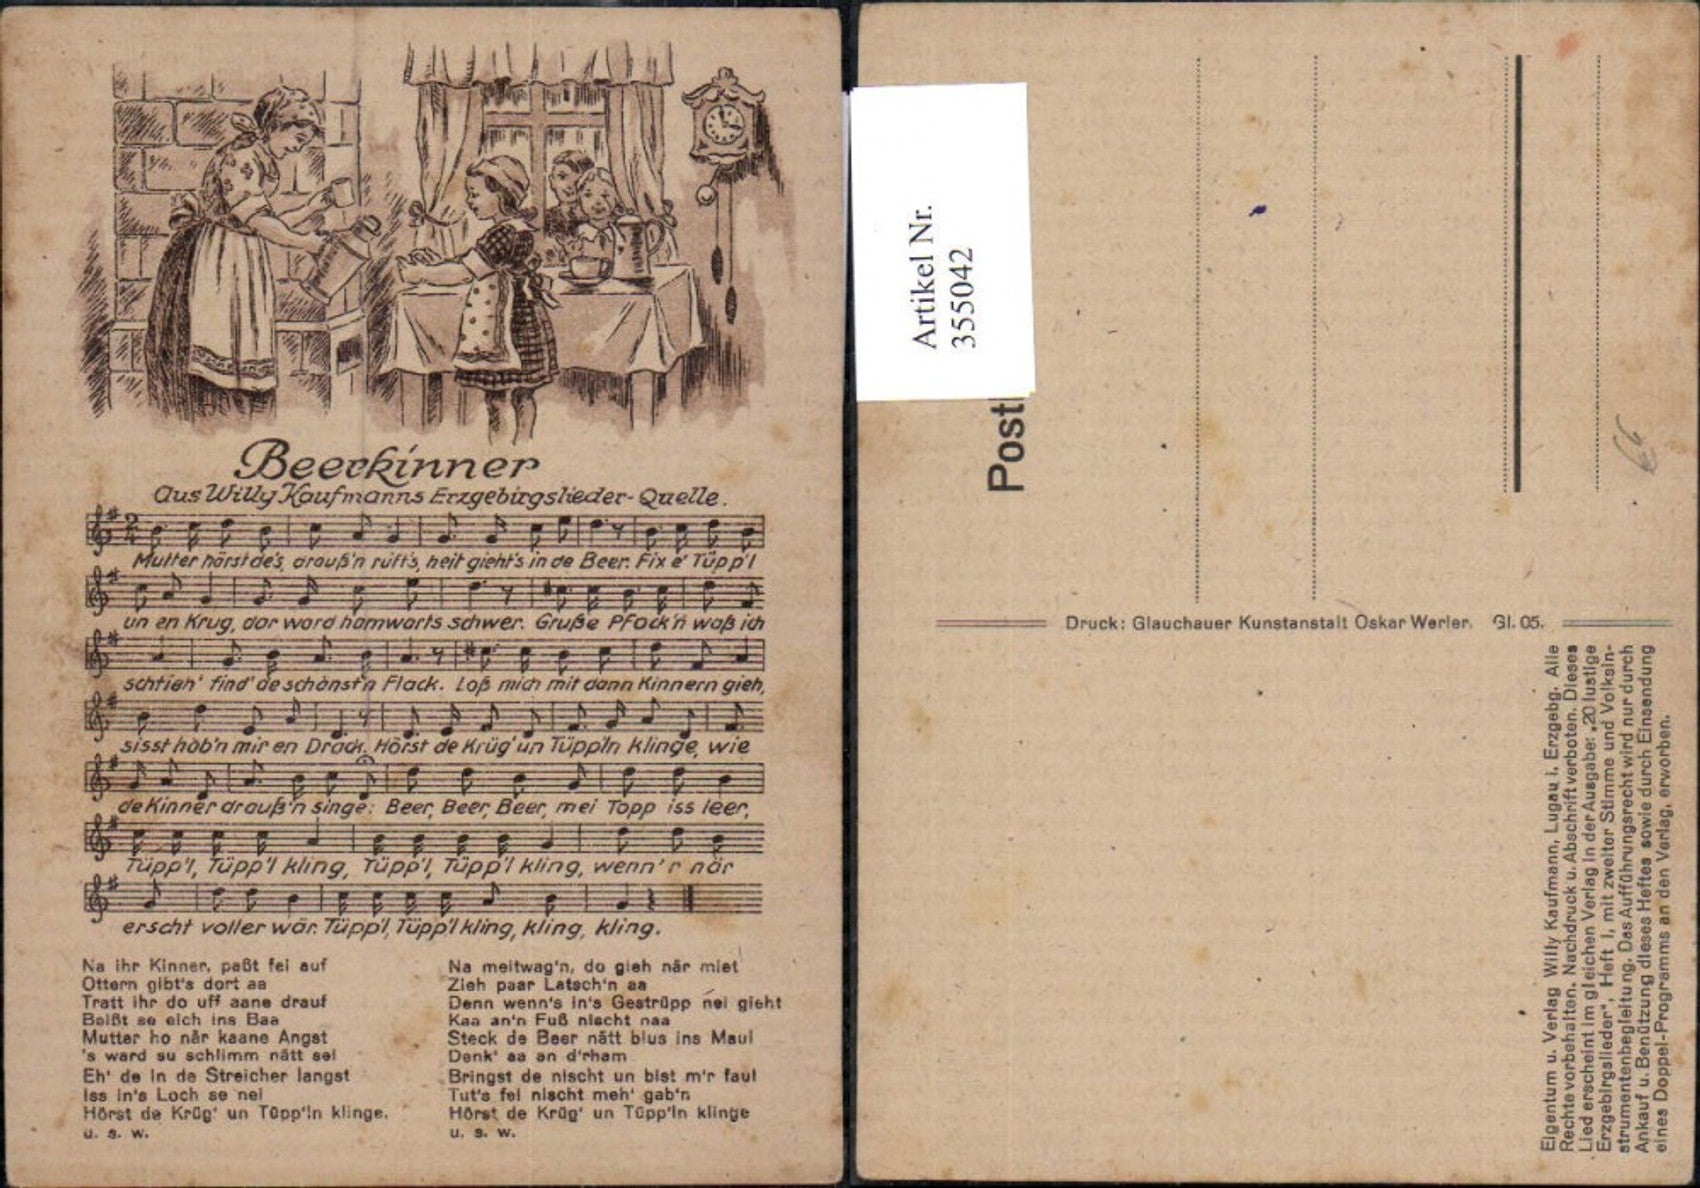 Beerkinner
Aus Willy Kaufmanns Erzgebirgslieder-Quelle.
Mutter hörst de's, drauß'n rüft's, heit gieht's in de Beer. Fix e' Tüpp'l
un en Krug, dar ward hamwarts schwer. Gruße Pfack'n waß ich
schtieh' find' de schönst'n Flack. Loß mich mit dann Kinnern gieh,
sisst hob'n mir en Drack. Hörst de Krüg' un Tüpp'ln klinge, wie
de Kinner drauß'n singe: Beer, Beer, Beer, mei Topp iss leer,
Tüpp'l, Tüpp'l kling, Tüpp'l, Tüpp'l kling, wenn'r när
erscht voller wär. Tüpp'l, Tüpp'l kling, kling, kling.
Na ihr Kinner, paßt fei auf
Ottern gibt's dort aa
Tratt ihr do uff aane drauf
Beißt se eich ins Baa
Mutter ho när kaane Angst
's ward su schlimm nätt sei
Eh' de in de Streicher langst
Iss in's Loch se nei
Hörst de Krüg' un Tüpp'ln klinge.
u. s. w.
Na meitwag'n, do gieh när miet
Zieh paar Latsch'n aa
Denn wenn's in's Gestrüpp nei gieht
Kaa an'n Fuß nischt naa
Steck de Beer nätt blus ins Maul
Denk' aa an d'rham
Bringst de nischt un bist m'r faul
Tut's fei nischt meh' gab'n
Hörst de Krüg' un Tüpp'ln klinge
u. s. w.
Artikel Nr.
3555042
Post
Druck: Glauchauer Kunstanstalt Oskar Werler. Gl. 05.
Eigentum u. Verlag Willy Kaufmann, Lugau i. Erzgebg. Alle
Rechte vorbehalten. Nachdruck u. Abschrift verboten. Dieses
Lied erscheint im gleichen Verlag in der Ausgabe: „20 lustige
Erzgebirgslieder", Heft I, mit zweiter Stimme und Volksin-
strumentenbegleitung. Das Aufführungsrecht wird nur durch
Ankauf u. Benützung dieses Heftes sowie durch Einsendung
eines Doppel-Programms an den Verlag, erworben.